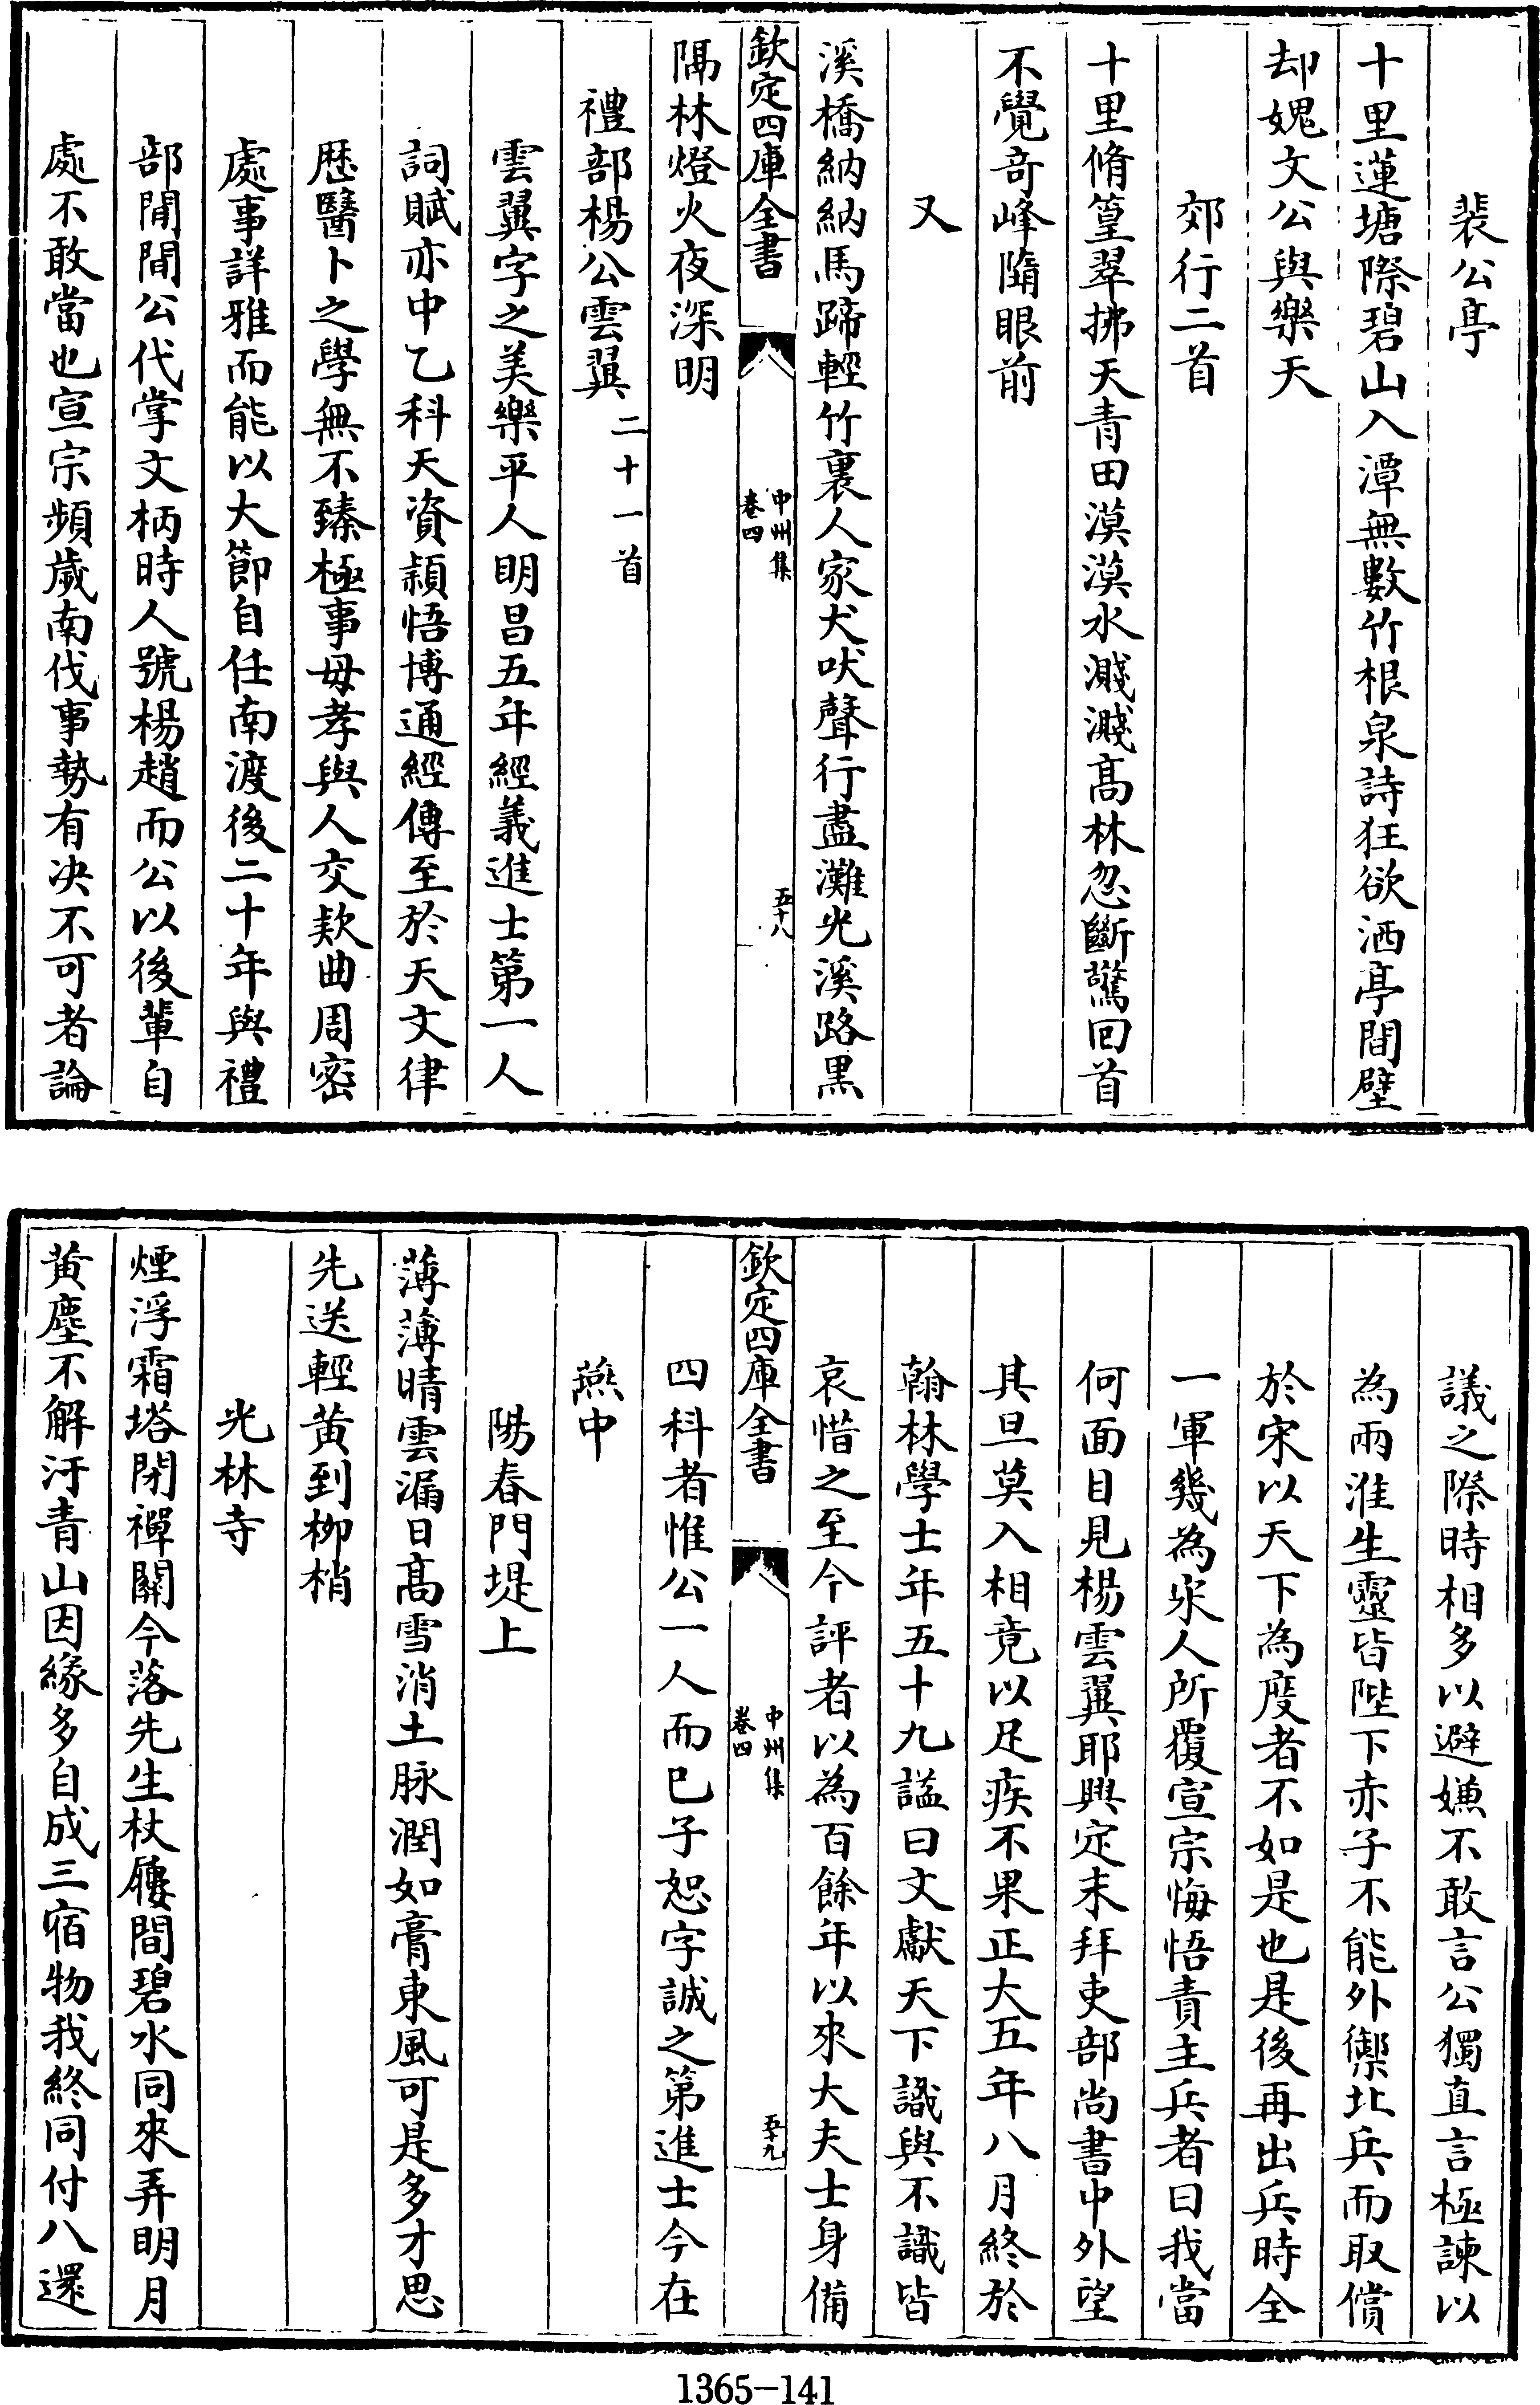 裴公亭
十里蓮塘際碧山入潭無數竹根泉詩狂欲洒亭間壁
却媿文公與樂天
郊行二首
十里脩篁翠拂天青田漠漠水濺濺髙林忽斷驚回首
不覺竒峰隨眼前
又
溪橋納納馬蹄輕竹裏人家犬吠聲行盡灘光溪路黒
欽定四庫全書
中州集
卷四
五十八
隔林燈火夜深明
禮部楊公雲翼二十一首
雲翼字之美樂平人明昌五年經義進士第一人
詞賦亦中乙科天資頴悟博通經傳至於天文律
歴醫卜之學無不臻極事毋孝與人交欵曲周密
處事詳雅而能以大節自任南渡後二十年與禮
部閒閒公代掌文柄時人號楊趙而公以後輩自
處不敢當也宣宗頻歲南伐事勢有決不可者論
議之際時相多以避嫌不敢言公獨直言極諫以
為兩淮生靈皆陛下赤子不能外禦北兵而取償
於宋以天下為度者不如是也是後再出兵時全
一軍幾為宋人所覆宣宗悔悟責主兵者曰我當
何面目見楊雲翼耶興定末拜吏部尚書中外望
其旦莫入相竟以足疾不果正大五年八月終於
翰林學士年五十九謚曰文獻天下識與不識皆
哀惜之至今評者以為百餘年以來大夫士身備
欽定四庫全書
中州集
卷四
五十九
四科者惟公一人而巳子恕字誠之第進士今在
燕中
陽春門堤上
薄薄晴雲漏日髙雪消土脉潤如膏東風可是多才思
先送輕黃到栁梢
光林寺
煙浮霜塔閉禪關今落先生杖屨間碧水同來弄明月
黃塵不解汙青山因緣多自成三宿物我終同付八還
1365-141